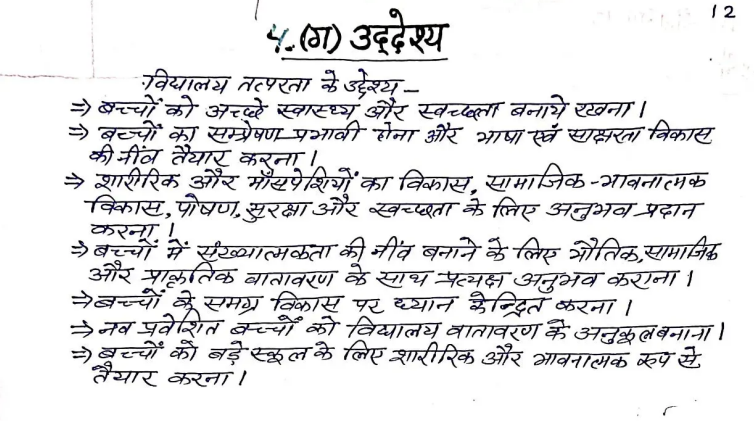 12
4.(ग) उद्देश्य
विद्यालय तत्परता के उद्देश्य –
⇒ बच्चों को अच्छे स्वास्थ्य और स्वच्छता बनाये रखना।
⇒ बच्चों का सम्प्रेषण प्रभावी होना और भाषा एवं साक्षरता विकास
की नींव तैयार करना।
⇒ शारीरिक और माँसपेशियों का विकास, सामाजिक-भावनात्मक
विकास, पोषण, सुरक्षा और स्वच्छता के लिए अनुभव प्रदान
करना।
⇒ बच्चों में संख्यात्मकता की नींव बनाने के लिए भौतिक, सामाजिक
और प्राकृतिक वातावरण के साथ प्रत्यक्ष अनुभव कराना।
⇒ बच्चों के समग्र विकास पर ध्यान केन्द्रित करना।
⇒ नव प्रवेशित बच्चों को विद्यालय वातावरण के अनुकूल बनाना।
⇒ बच्चों को बड़े स्कूल के लिए शारीरिक और भावनात्मक रूप से
तैयार करना।